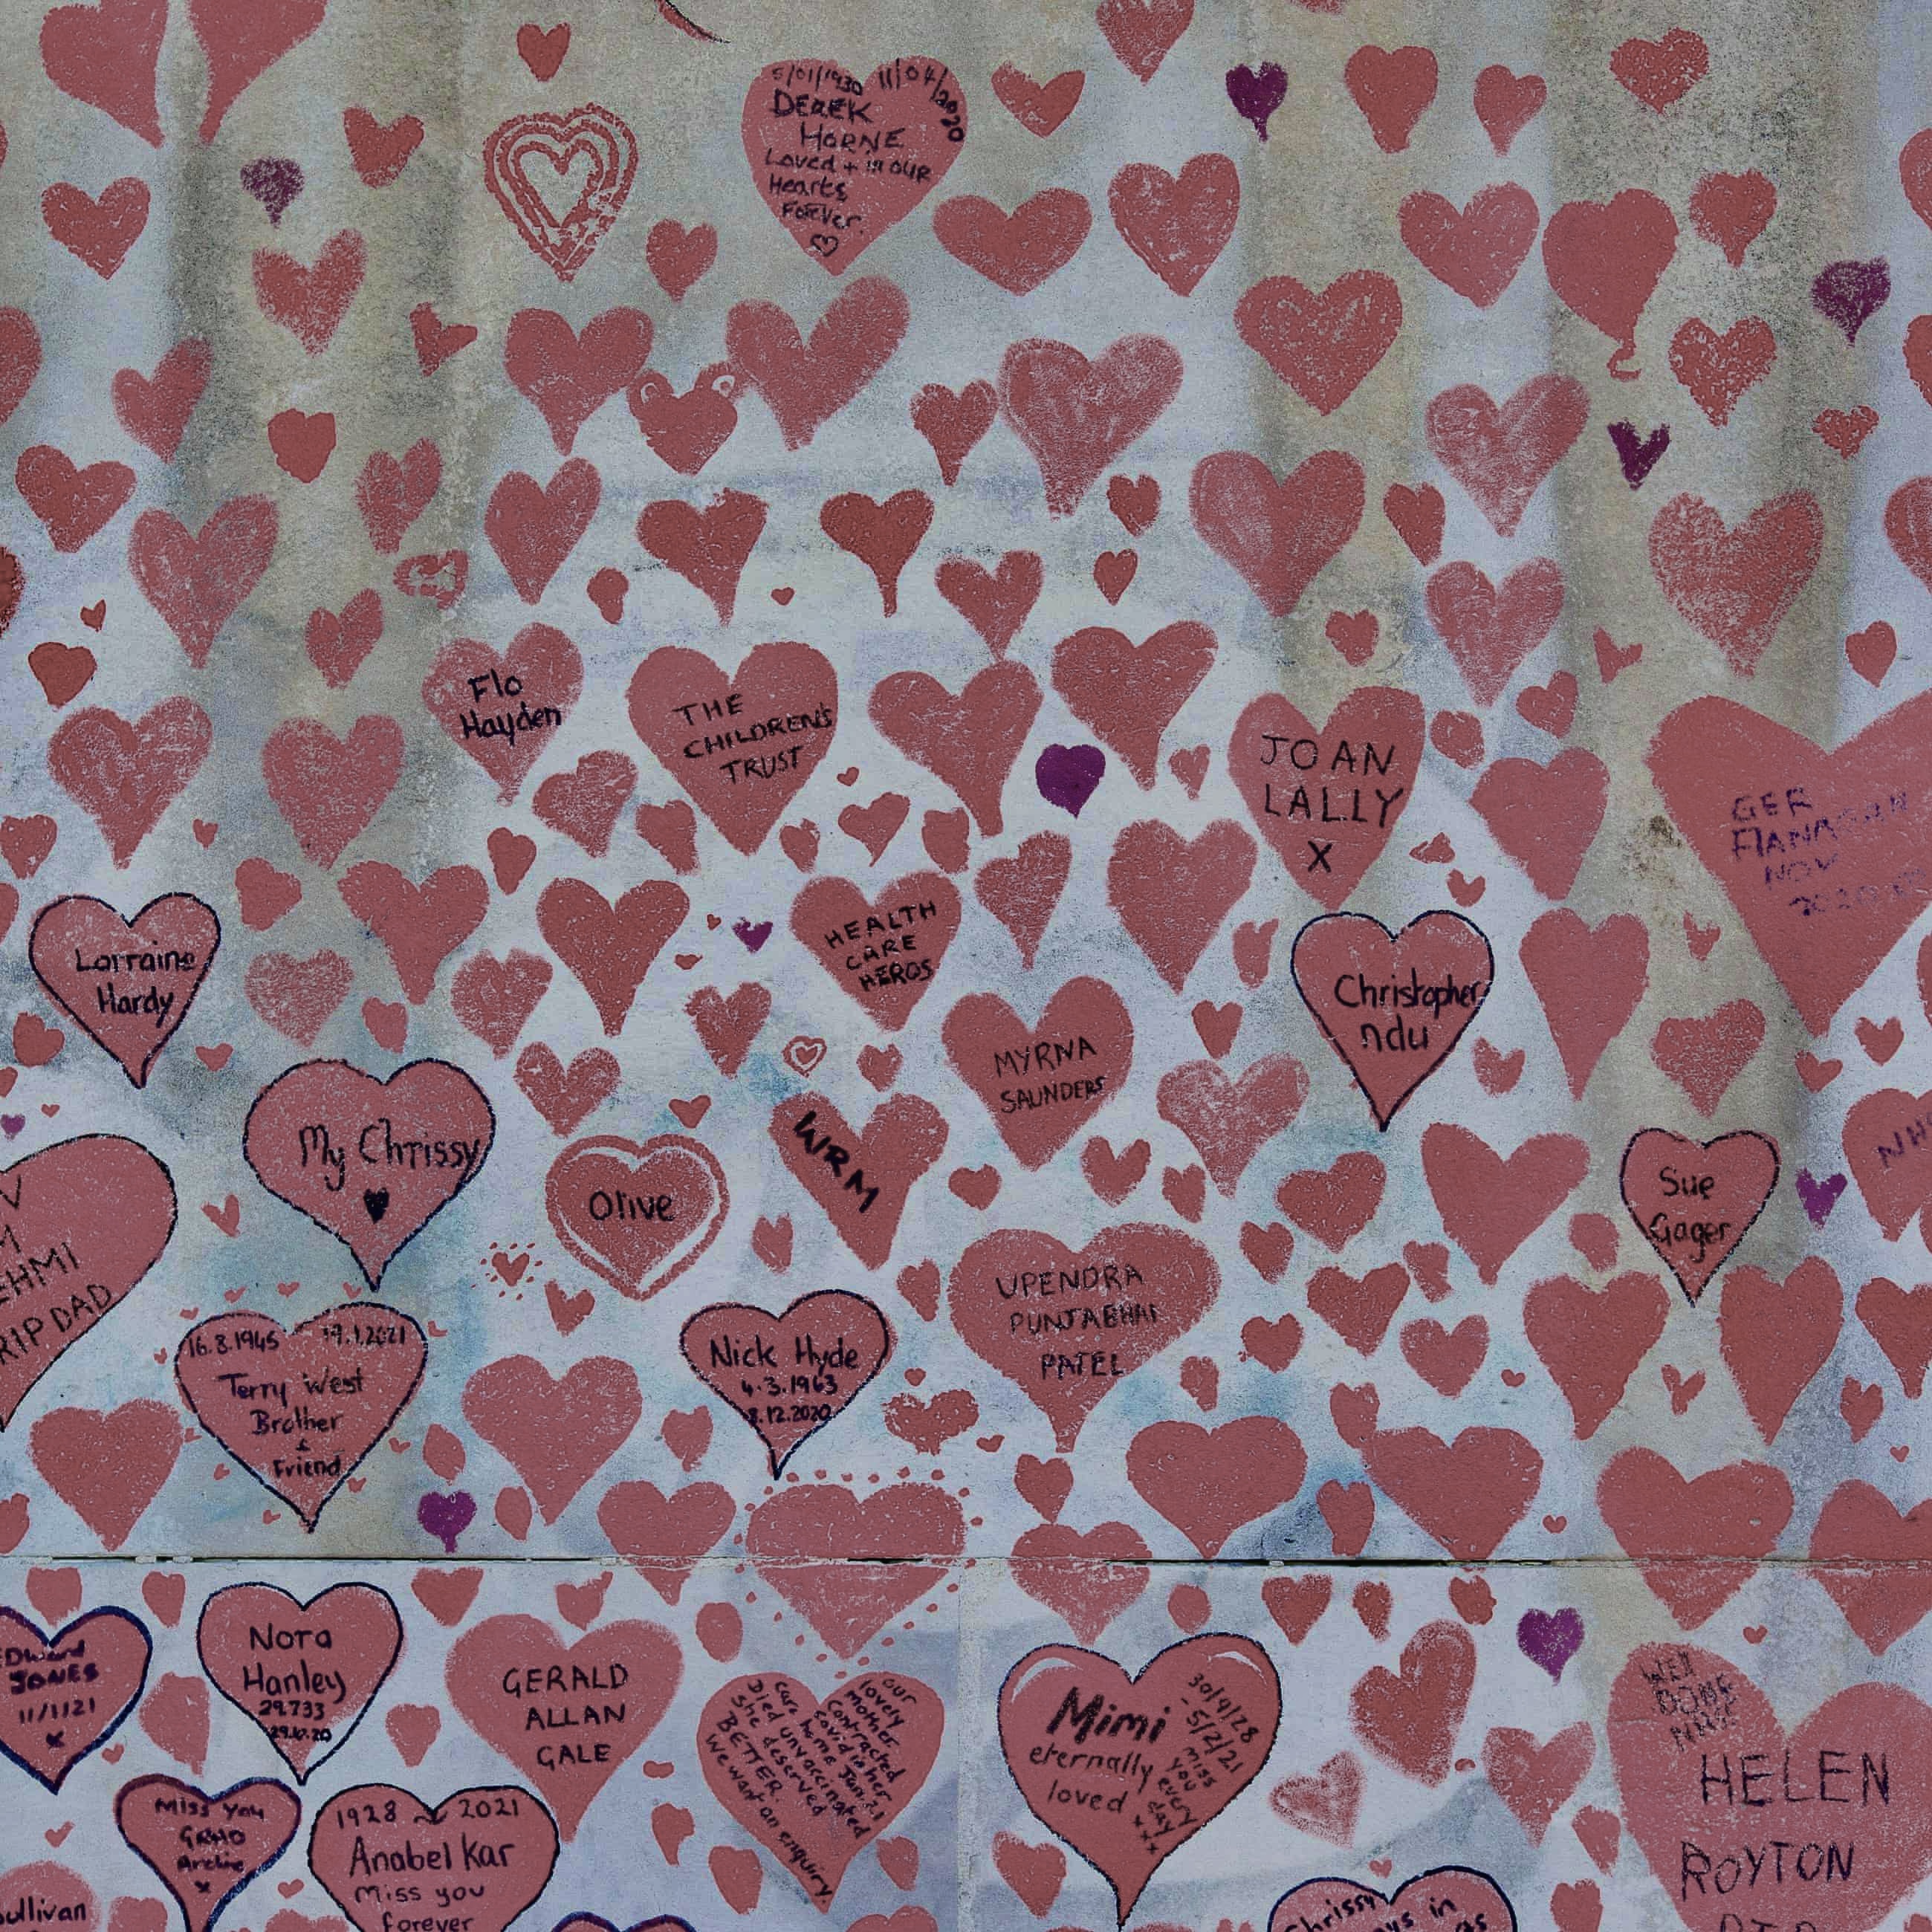 5/01/1930 11/04/2020
DEREK
HORNE
Loved + in OUR
Hearts
Forever.
Flo
Hayden
THE
CHILDREN'S
TRUST
JOAN
LALLY
X
GER
FLANAGAN
NOV
Lorraine
Hardy
HEALTH
CARE
HEROS
Christopher
ndu
MYRNA
SAUNDERS
My Chrissy
Olive
WRM
Sue
Gager
NH
EHMI
RIP DAD
16.8.1945 19.1.2021
Terry West
Brother
&
Friend
Nick Hyde
4.3.1963
8.12.2020
UPENDRA
PUNJABHAI
PATEL
Edward
JONES
11/1/21
x
Nora
Hanley
29.7.33
29.10.20
GERALD
ALLAN
GALE
our
lovely
mother
contracted
covid in her
care home Jan. 21
Died unvaccinated
She deserved
BETTER.
We want an enquiry.
Mimi
eternally
loved
30/9/28
-5/2/21
miss
you
every
day
xxx
WELL
DONE
NHS
HELEN
ROYTON
Miss you
GRAD
Archie
x
1928 ~ 2021
Anabel Kar
Miss you
forever
ullivan
Chrissy